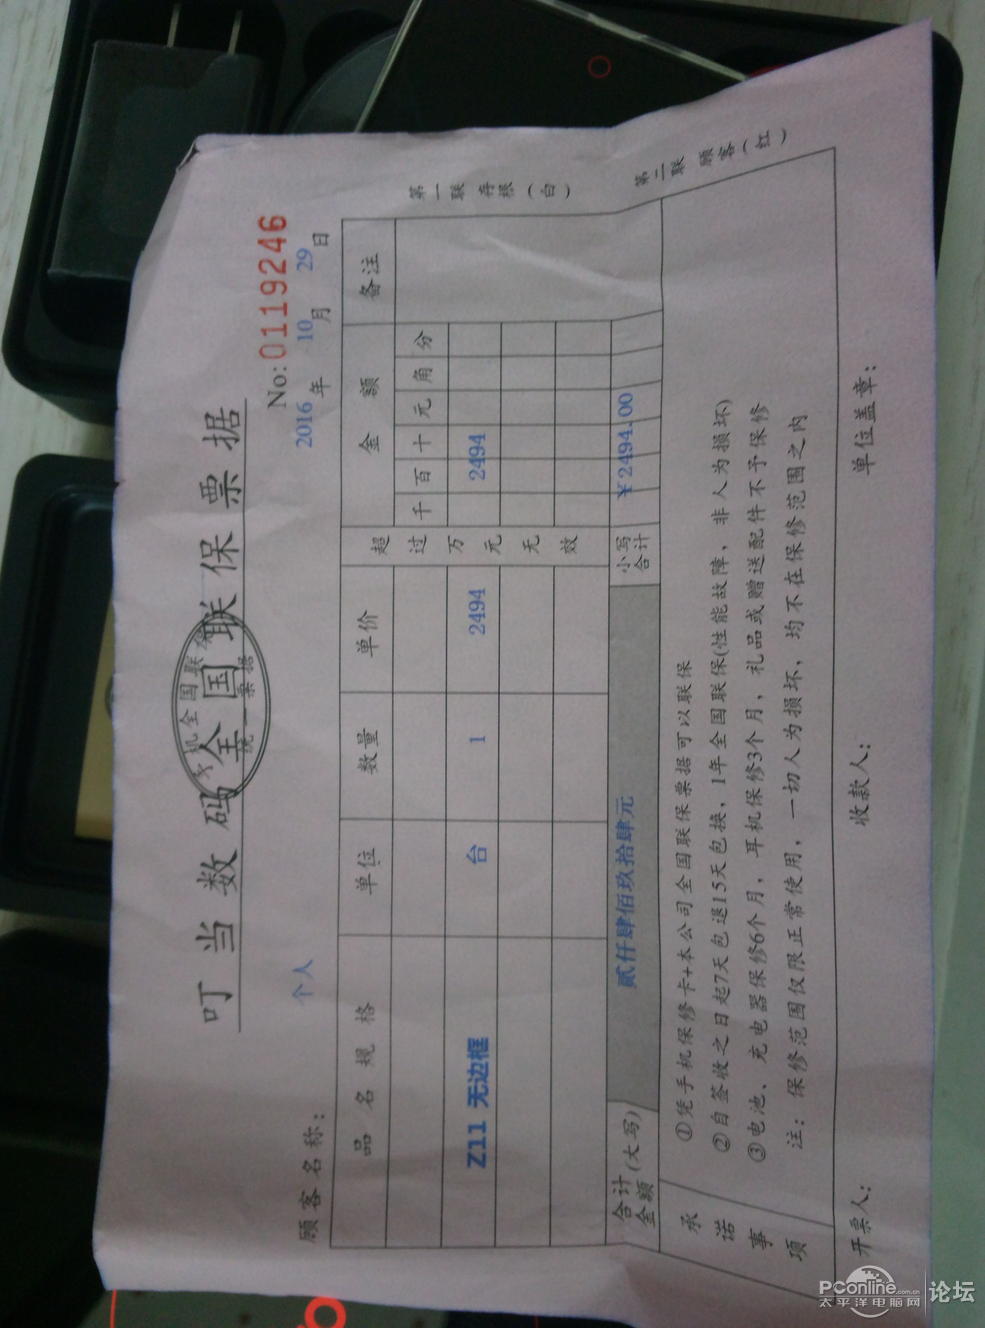 叮当数码全国联保票据
机全国联
统一票据
No:0119246
顾客名称: 个人 2016年10月29日
品名规格 单位 数量 单价 超过万元无效 金额 备注
千 百 十 元 角 分
Z11 无边框 台 1 2494 2494
合计金额(大写) 贰仟肆佰玖拾肆元 小写合计 ¥2494.00
承诺事项
①凭手机保修卡+本公司全国联保票据可以联保
②自签收之日起7天包退15天包换,1年全国联保(性能故障,非人为损坏)
③电池、充电器保修6个月,耳机保修3个月,礼品或赠送配件不予保修
注:保修范围仅限正常使用,一切人为损坏,均不在保修范围之内
开票人: 收款人: 单位盖章:
第一联 存根(白)
第二联 顾客(红)
PConline.com.cn
太平洋电脑网 论坛